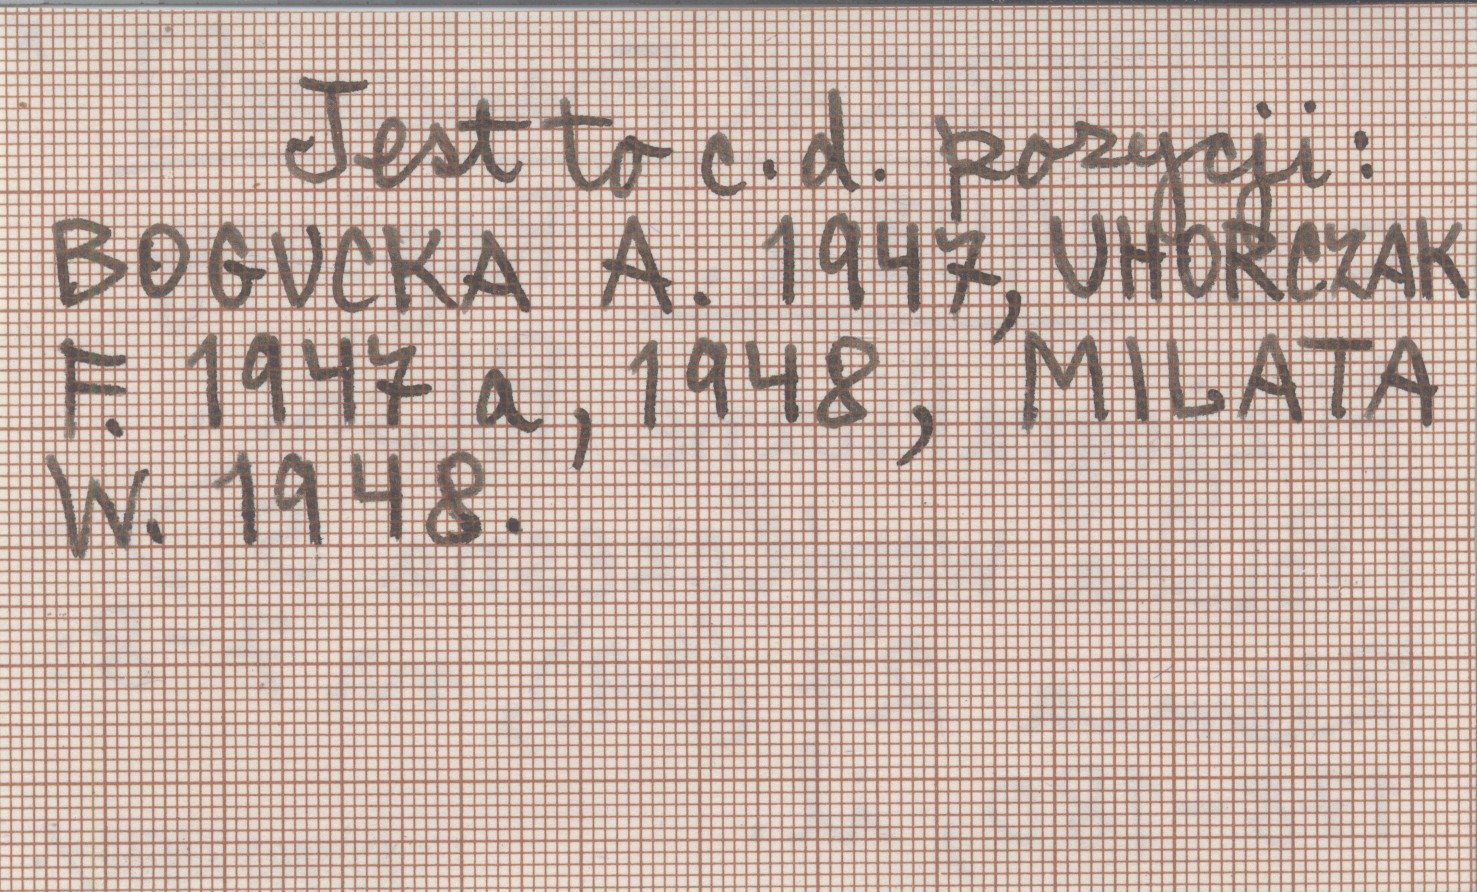 Jest to c.d. pozycji:
BOGUCKA A. 1947, UHORCZAK
F. 1947 a, 1948, MILATA
W. 1948.